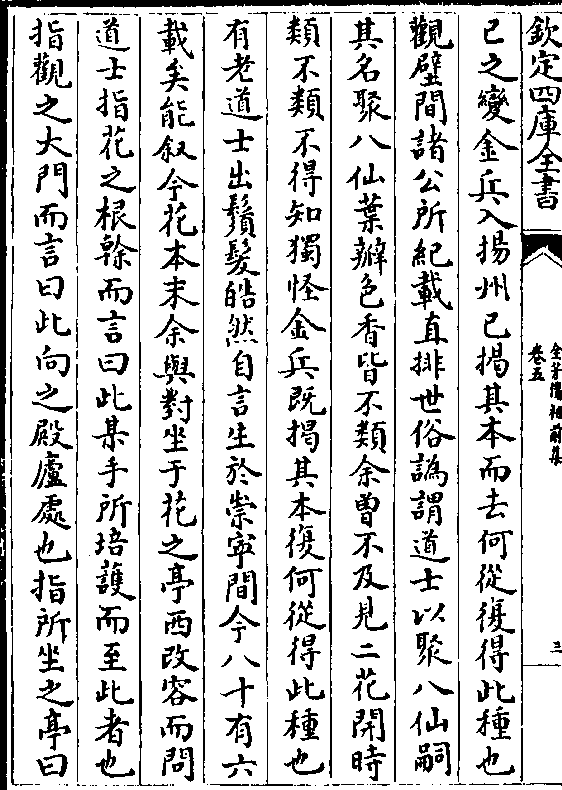 欽定四庫全書
全芳備祖前集
卷五
三
已之變金兵入揚州已揭其本而去何從復得此種也
觀壁間諸公所紀載直排世俗譌謂道士以聚八仙嗣
其名聚八仙葉瓣色香皆不類余曽不及見二花開時
類不類不得知獨怪金兵既揭其本復何從得此種也
有老道士出鬚髮皓然自言生於崇寧間今八十有六
載矣能叙今花本末余與對坐于花之亭西改容而問
道士指花之根榦而言曰此某手所培護而至此者也
指觀之大門而言曰此向之殿廬處也指所坐之亭曰